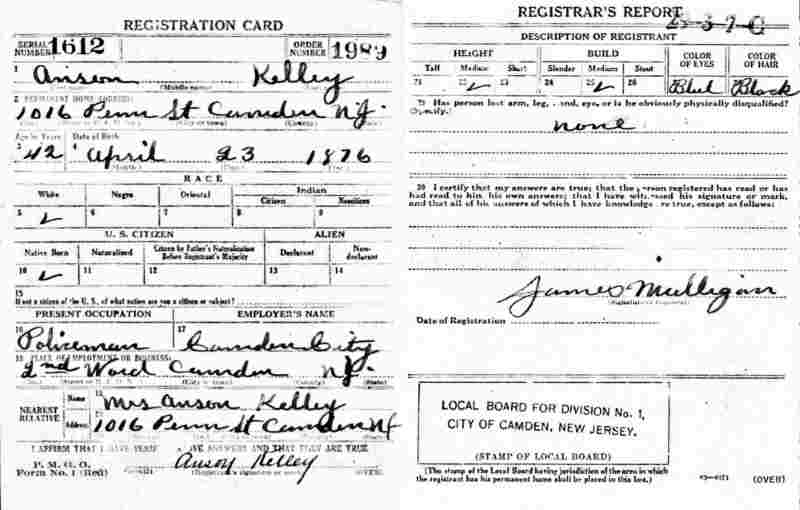 REGISTRATION CARD
SERIAL NUMBER 1612 ORDER NUMBER 1989
1 Anson Kelley
(Middle name)
2 PERMANENT HOME ADDRESS:
1016 Penn St Camden NJ.
Age in Years Date of Birth
3 42 4 April 23 1876
RACE
White Negro Oriental Indian
Citizen Noncitizen
5 ✓ 6 7 8 9
U. S. CITIZEN ALIEN
Native Born Naturalized Citizen by Father's Naturalization Before Registrant's Majority Declarant Non-declarant
10 ✓ 11 12 13 14
15
If not a citizen of the U. S., of what nation are you a citizen or subject?
PRESENT OCCUPATION EMPLOYER'S NAME
16 Policeman 17 Camden City
18 PLACE OF EMPLOYMENT OR BUSINESS:
2nd Ward Camden NJ.
NEAREST RELATIVE Name 19 Mrs Anson Kelley
Address 20 1016 Penn St Camden NJ
I AFFIRM THAT I HAVE ANSWERS AND THAT THEY ARE TRUE
P. M. G. O.
Form No. 1 (Red) Anson Kelley
(Registrant's signature or mark) (OVER)
REGISTRAR'S REPORT
DESCRIPTION OF REGISTRANT
HEIGHT BUILD COLOR OF EYES COLOR OF HAIR
Tall Medium Short Slender Medium Stout
21 22 ✓ 23 24 25 ✓ 26 Blue Black
29 Has person lost arm, leg, hand, eye, or is he obviously physically disqualified?
(Specify.)
none
30 I certify that my answers are true; that the person registered has read or has
had read to him his own answers; that I have witnessed his signature or mark,
and that all of his answers of which I have knowledge are true, except as follows:
James Mulligan
Date of Registration
LOCAL BOARD FOR DIVISION No. 1,
CITY OF CAMDEN, NEW JERSEY.
(STAMP OF LOCAL BOARD)
(The stamp of the Local Board having jurisdiction of the area in which
the registrant has his permanent home shall be placed in this box.) (OVER)